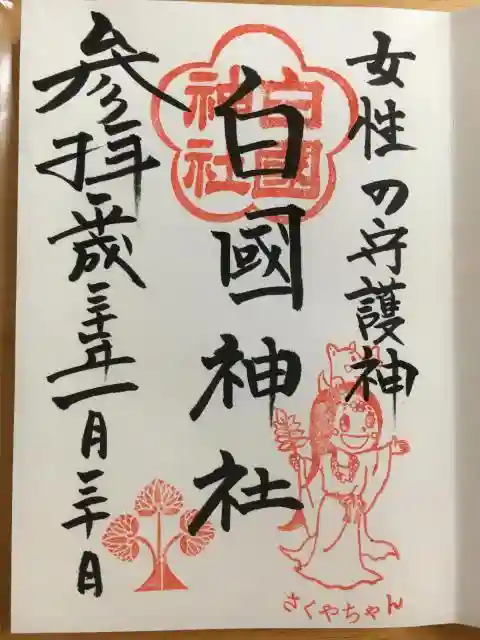 女性の守護神
白國神社
白國神社
参拝
平成三十一年一月三十日
さくやちゃん